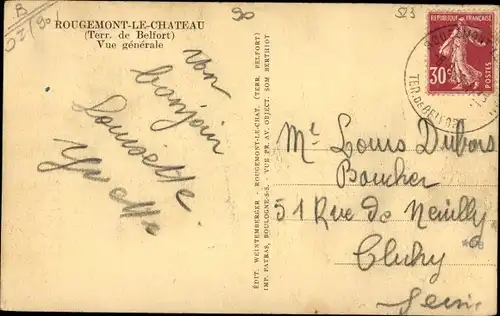 B
90
523
ROUGEMONT-LE-CHATEAU
(Terr. de Belfort)
Vue générale
un
bonjour
Louisette
Yvette
ÉDIT. WEINTEMBERGER - ROUGEMONT-LE-CHAT. (TERR. BELFORT)
IMP. PATRAS, BOULOGNE-S.-S. - VUE PR. AV. OBJECT. SOM BERTHIOT
RÉPUBLIQUE FRANÇAISE
30c
POSTES
TER. DE BELFORT
Mr Louis Dubois
Boucher
51 Rue de Neuilly
Clichy
Seine